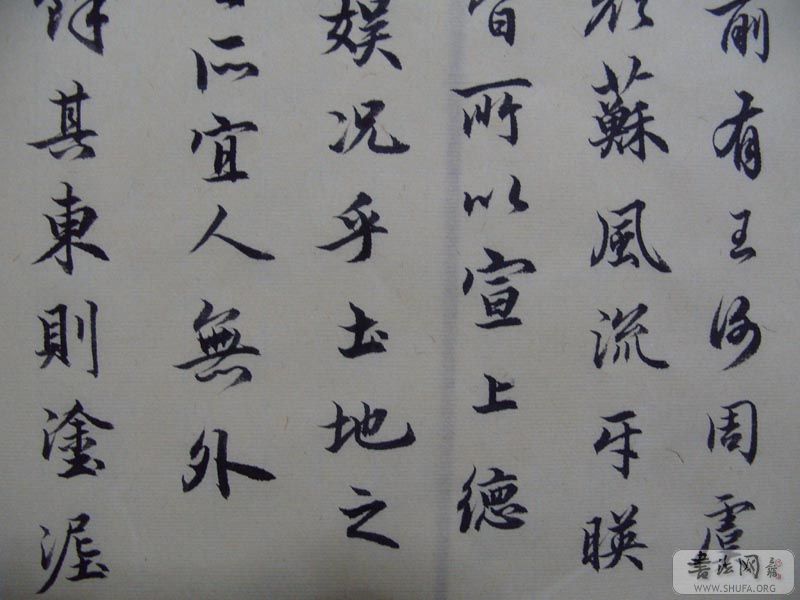 前有王謝周虞
顏蘇風流互暎
皆所以宣上德
娱况乎土地之
所宜人無外
餘其東則塗泥
書法网
WWW.SHUFA.ORG